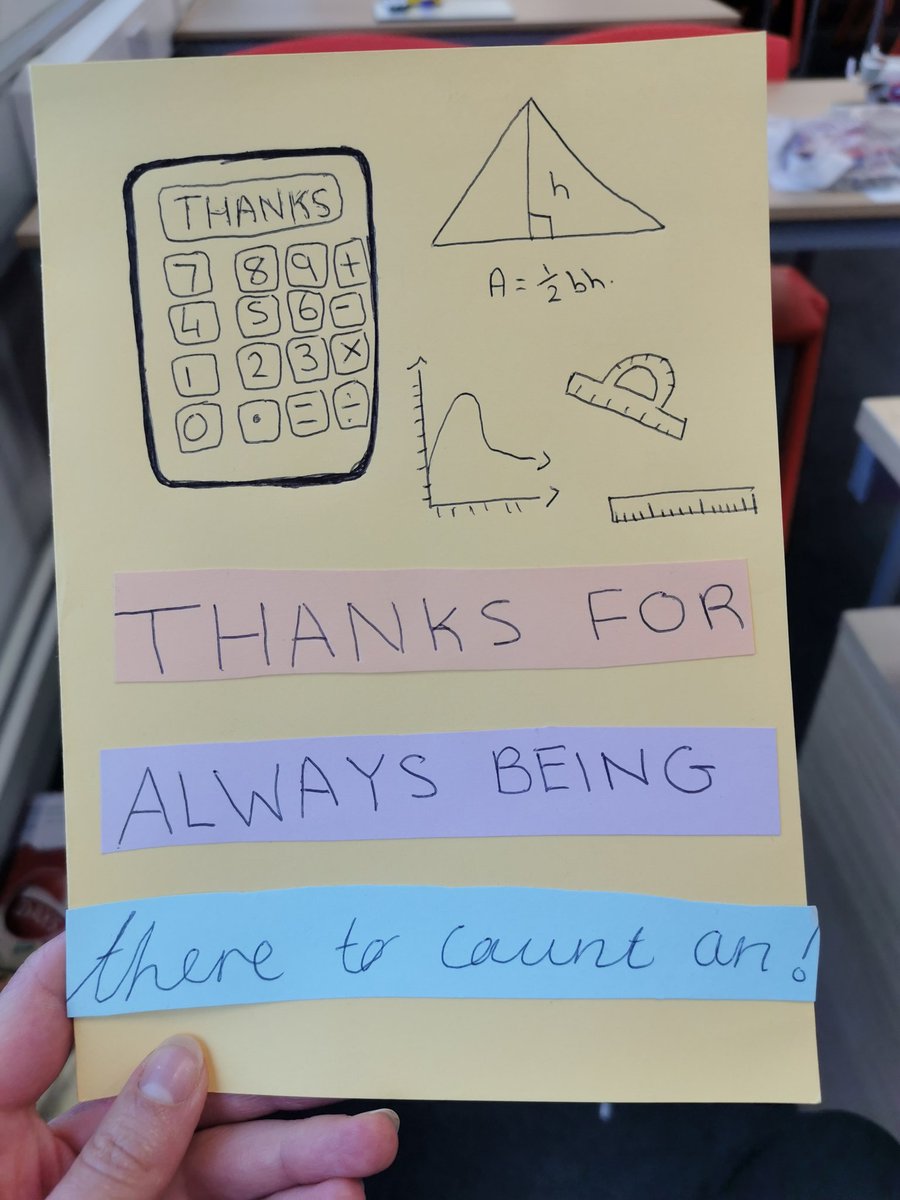 THANKS
7 8 9 +
4 5 6 -
1 2 3 ×
0 . = ÷
h
A = ½ bh.
THANKS FOR
ALWAYS BEING
there to count on!